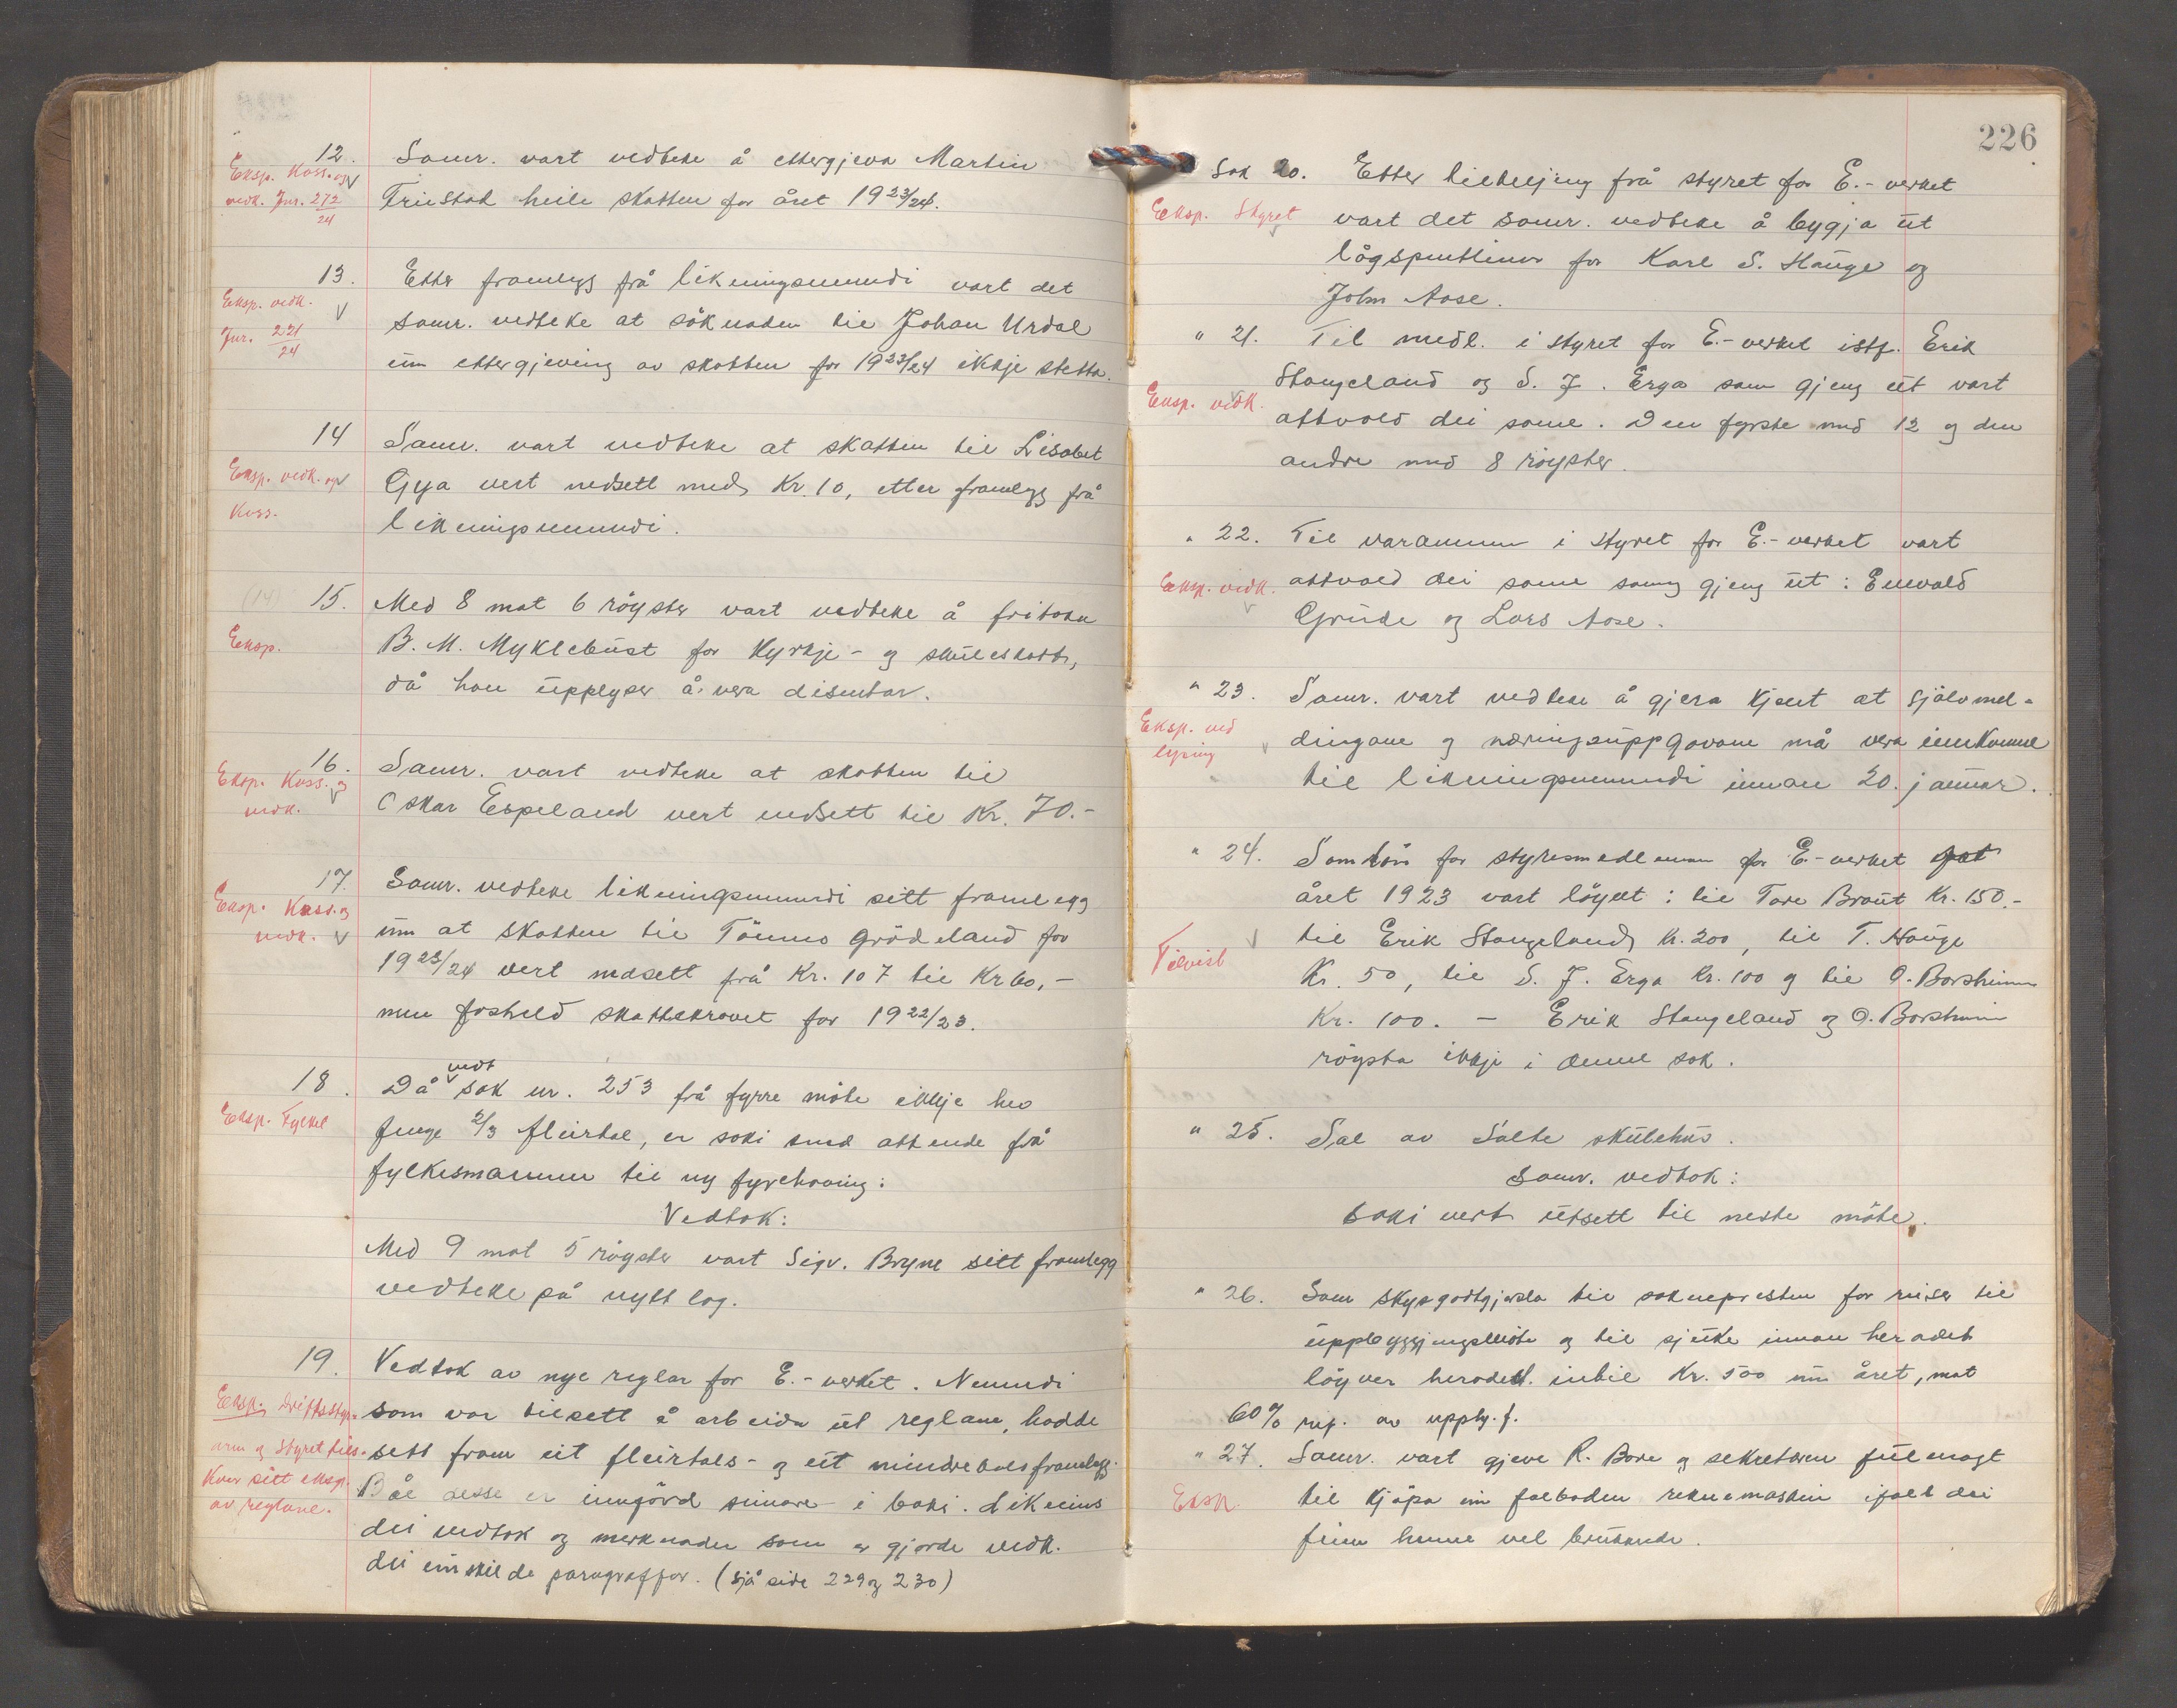 12. Samr. vart vedteke å ettergjeva Martin
Eksp. Kass. og
vedk. Jnr. 272/24
Friestad heile skatten for året 1923/24.
13. Etter framlegg frå likningsnemndi vart det
Eksp. vedk.
samr. vedteke at söknaden til Johan Urdal
Jnr. 221/24
um ettergjeving av skatten for 1923/24 ikkje stetta.
14 Samr. vart vedteke at skatten til Lisabet
Eksp. vedk. og
Gya vert nedsett med Kr. 10, etter framlegg frå
Kass.
likningsnemndi.
(14) 15. Med 8 mot 6 röyster vart vedteke å fritaka
Eksp.
B. M. Myklebust for Kyrkje- og skuleskatt,
då han upplyser å vera disentar.
16. Samr. vart vedteke at skatten til
Eksp. Kass. og
vedk.
Oskar Espeland vert nedsett til Kr. 70.-
17. Samr. vedteke likningsnemndi sitt framlegg
Eksp. Kass. og
vedk.
um at skatten til Tönnes Grödeland for
1923/24 vert nedsett frå Kr. 107 til Kr 60,-
men fasheld skattekravet for 1922/23.
vedt
18. Då sak nr. 253 frå fyrre möte ikkje hev
Eksp. Fylket
fenge 2/3 fleirtal, er saki send attende frå
fylkesmannen til ny fyrehaving:
Vedtak:
Med 9 mot 5 röyster vart Sigv. Bryne sitt framlegg
vedteke på nytt lag.
19. Vedtak av nye reglar for E.-verket. Nemndi
Eksp. Driftsstyr.
som var tilsett å arbeida ut reglane, hadde
arm og styret tils.
sett fram eit fleirtals- og eit mindretalsframlegg.
Kvar sitt eksp.
Båe desse er inngörd seinare i boki. Likeeins
av reglane.
dei vedtak og merknader som er gjorde vedk.
dei einskilde paragraffar. (Sjå side 229 og 230)
226
Sak 20. Etter tilteljing frå styret for E.-verket
Eksp. Styret
vart det samr. vedteke å bygja ut
lågspentlinor for Karl S. Hauge og
John Aase.
" 21. Til medl. i styret for E.-verket istf. Erik
Stangeland og S. J. Erga som gjeng ut vart
Eksp. vedk.
attvald dei same. Den fyrste med 12 og den
andre med 8 röyster.
" 22. Til varamenn i styret for E.-verket vart
Eksp. vedk.
attvald dei same som gjeng ut: Enevald
Grude og Lars Aase.
" 23. Samr. vart vedteke å gjera kjent at sjölvmel-
Eksp. ved
lysing
dingane og næringsuppgavone må vera innkomne
til likningsnemndi innan 20. januar.
" 24. Som lön for styresmedlemmer for E-verket
året 1923 vart löyvt: til Tore Braut Kr. 150.-
Tilvist
til Erik Stangeland Kr. 200, til T. Hauge
Kr. 50, til S. J. Erga Kr. 100 og til O. Borsheim
Kr. 100. - Erik Stangeland og O. Borsheim
röysta ikkje i denne sak.
" 25. Sal av Salte skulehus.
Samr. vedtok:
Saki vert utsett til neste möte.
" 26. Som skyssgodtgjersla til soknepresten for reiser til
uppbyggjingsmöte og til sjuke innan heradet
löyver heradet inntil Kr. 500 um året, mot
60% ref. av upplj. f.
" 27. Samr. vart gjeve R. Bore og sekretæren fullmagt
Eksp.
til kjöpa ein falboden reknemaskin ifall dei
finn henne vel brukande.